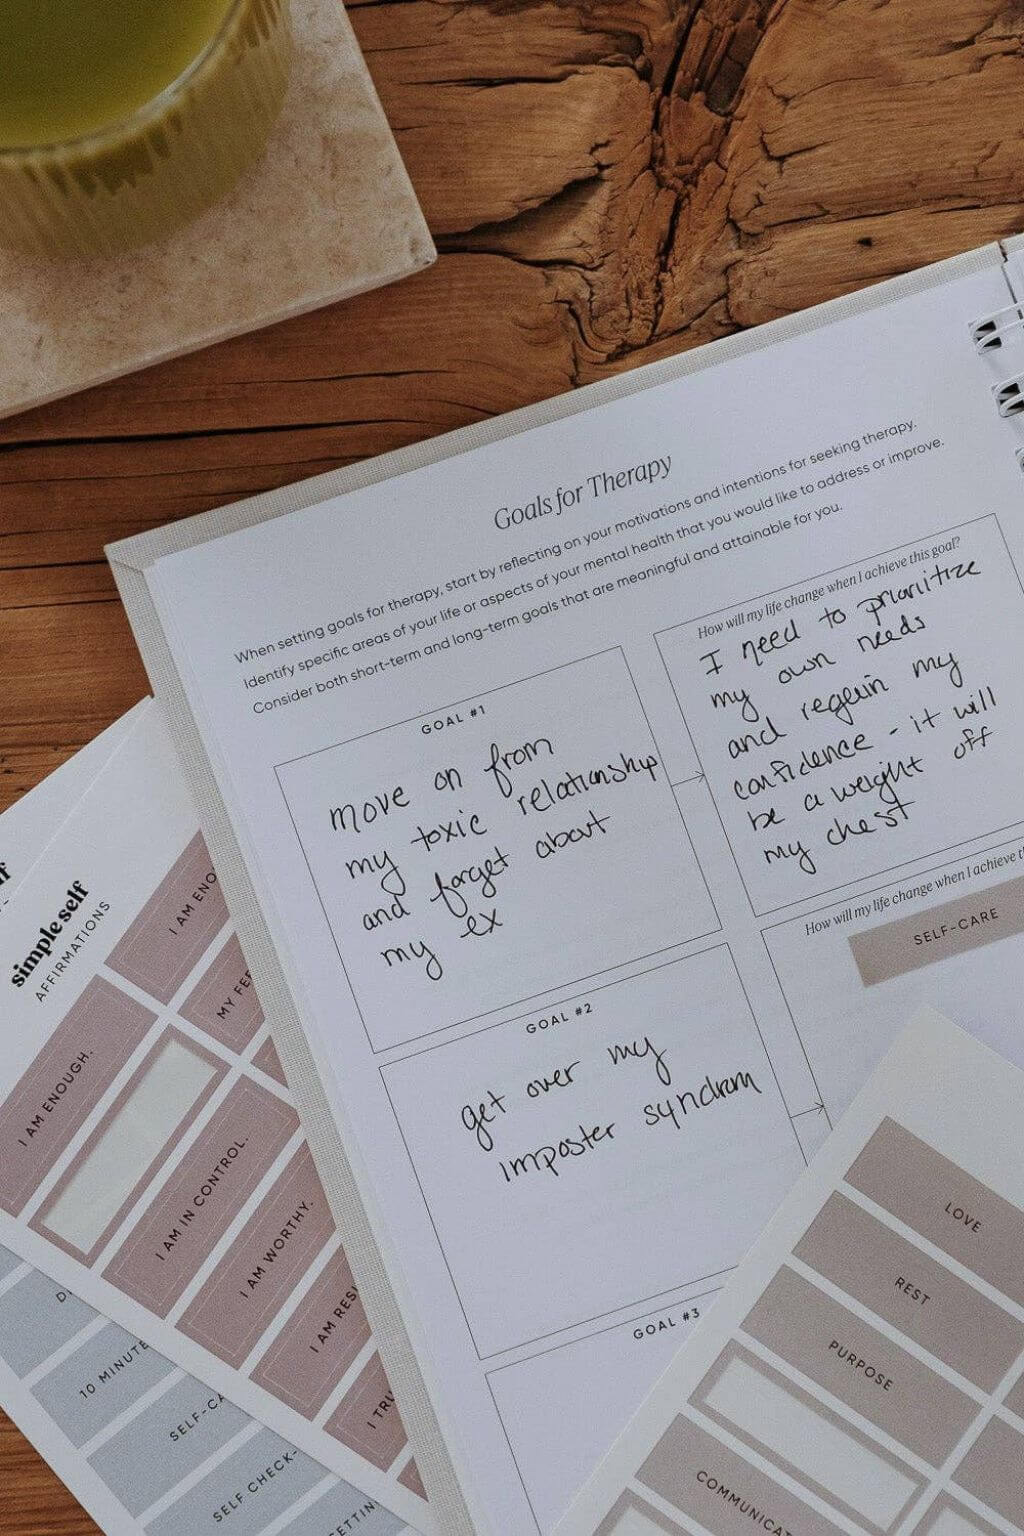 Goals for Therapy
When setting goals for therapy, start by reflecting on your motivations and intentions for seeking therapy.
Identify specific areas of your life or aspects of your mental health that you would like to address or improve.
Consider both short-term and long-term goals that are meaningful and attainable for you.
GOAL #1
move on from
my toxic relationship
and forget about
my ex
How will my life change when I achieve this goal?
I need to prioritize
my own needs
and regain my
confidence - it will
be a weight off
my chest
GOAL #2
get over my
imposter syndrom
How will my life change when I achieve
SELF-CARE
GOAL #3
simple self
AFFIRMATIONS
I AM
MY
I AM ENOUGH.
I AM IN CONTROL.
I AM WORTHY.
I AM
I
10 MINUTE
SELF-
SELF CHECK-
LOVE
REST
PURPOSE